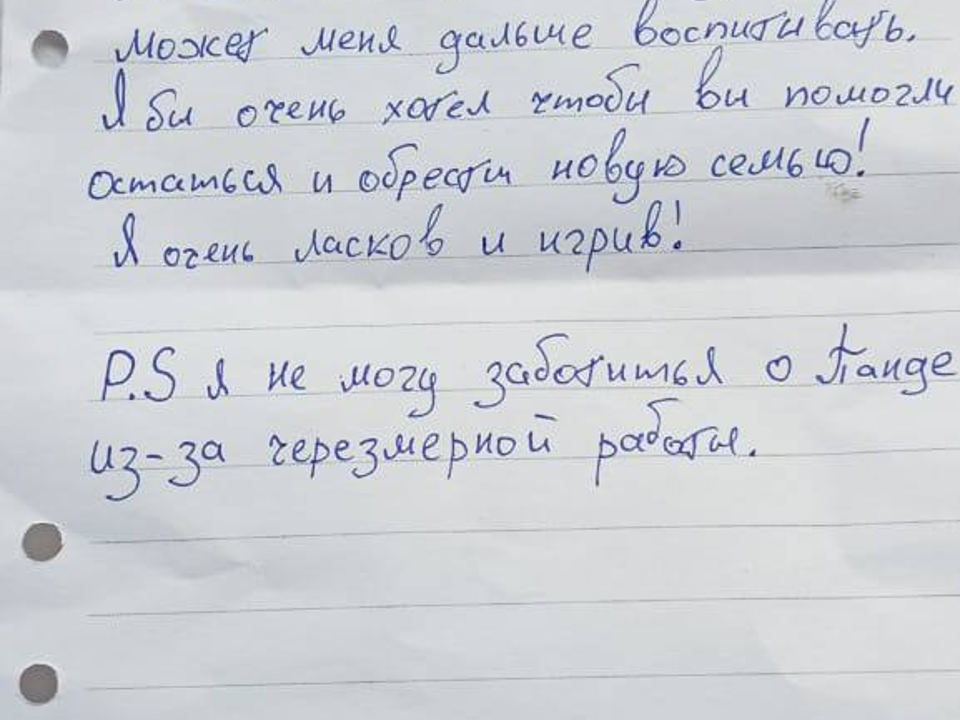 может меня дальше воспитывать.
Я би очень хотел чтоби ви помогли
остаться и обрести новую семью!
Я очень ласков и игрив!
P.S я не могу заботиться о Панде
из-за черезмерной работы.